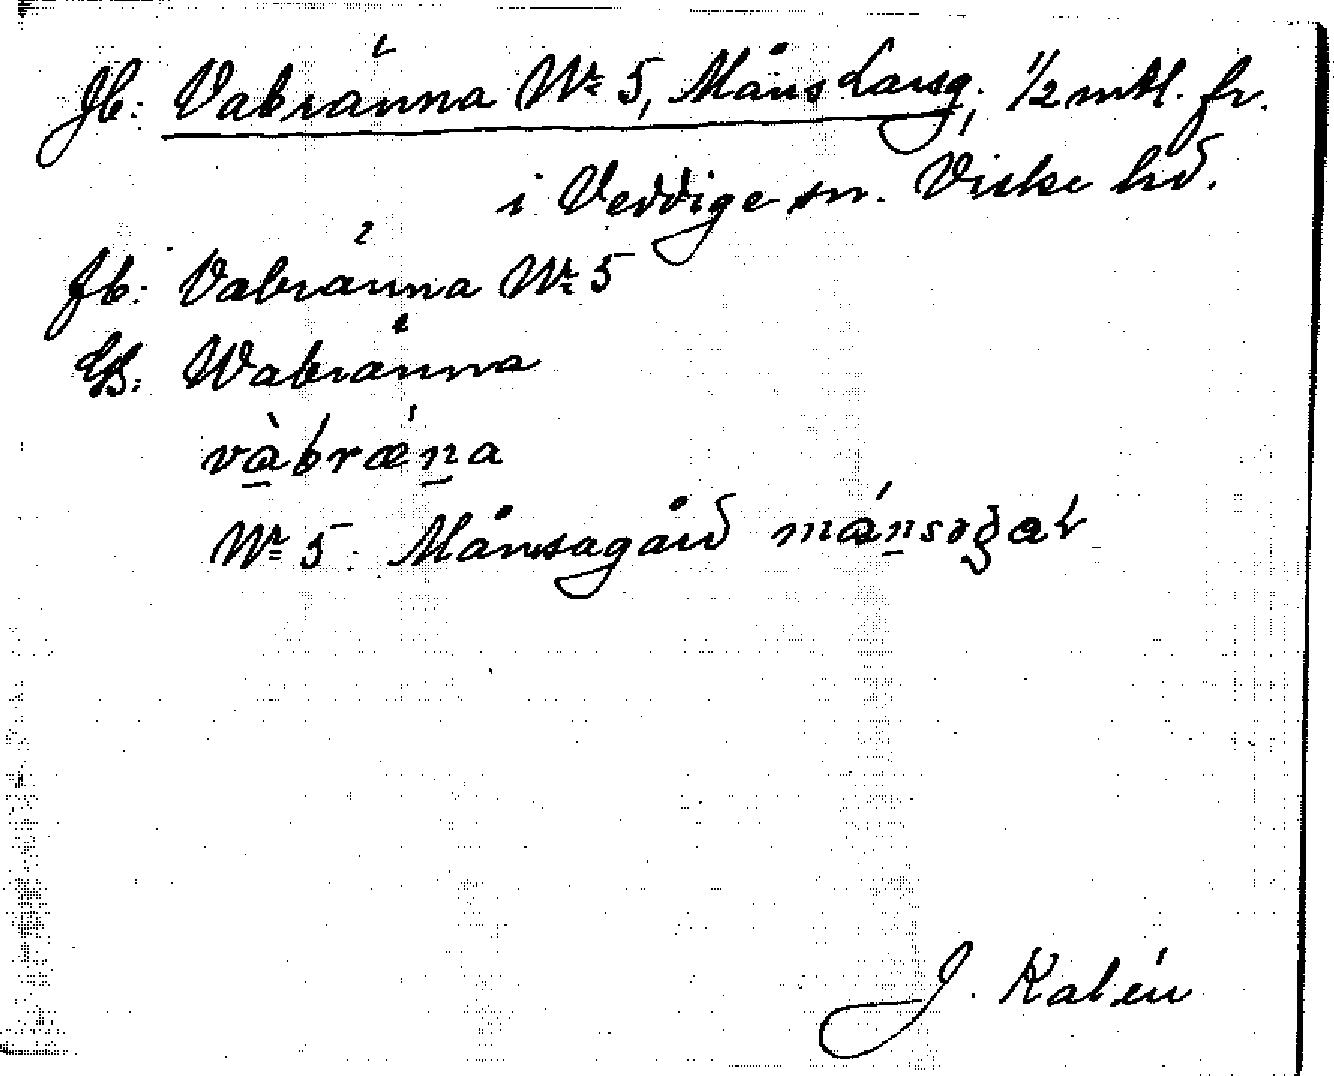 Jb: Vabränna Nr 5, Måns Larsg., 1/2 mtl. fr.
i Veddige sn. Viske hd.
Jb: Vabränna Nr 5
GB: Wabränna
vàbrǽna
Nr 5. Månsagård månsagar
J. Kalén